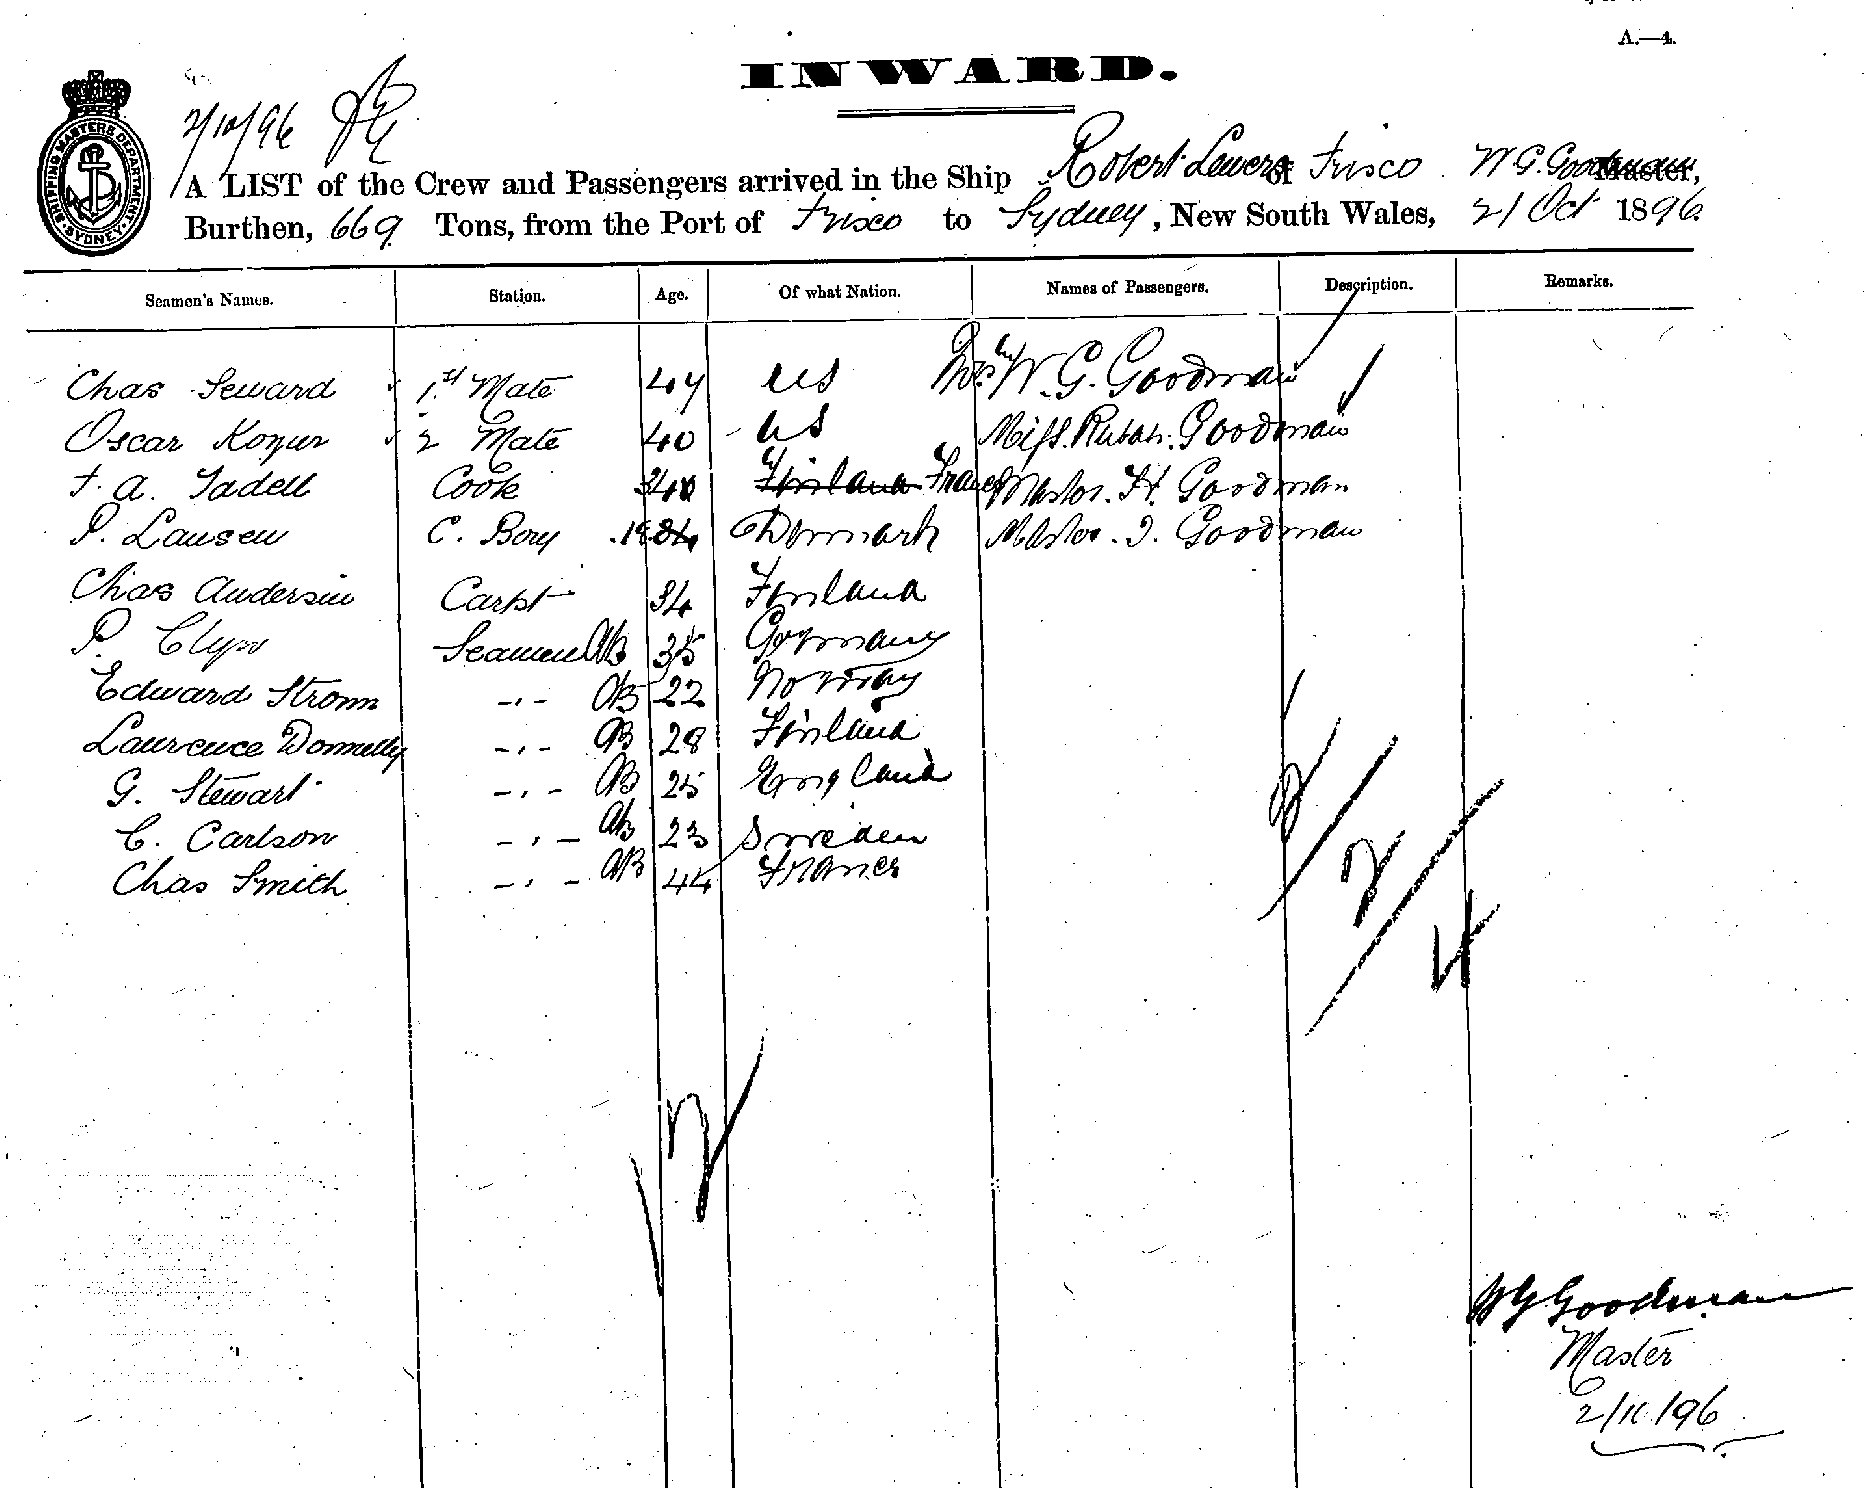 A.—4.
INWARD.
SHIPPING MASTERS DEPARTMENT SYDNEY
2/10/96
A LIST of the Crew and Passengers arrived in the Ship Robert Lewers of Frisco W G. Goodman Master,
Burthen, 669 Tons, from the Port of Frisco to Sydney, New South Wales, 21 Oct 1896
Seamen's Names. Station. Age. Of what Nation. Names of Passengers. Description. Remarks.
Chas Seward 1st Mate 47 US Mrs W. G. Goodman
Oscar 2 Mate 40 US Miss Goodman
F. A. Tadell Cook Finland France Master. H. Goodman
P. Lausen C. Boy 19 Denmark Master. I. Goodman
Chas Anderson Carpt 34 Finland
P. Seamen AB 35 Germany
Edward Strom -"- AB 22 Norway
Laurence Donnelly -"- AB 28 Finland
G. Stewart -"- AB 25 England
C. Carlson -"- AB 23 Sweden
Chas Smith -"- AB 44 France
2
2
4
12
W G Goodman
Master
2/11/96